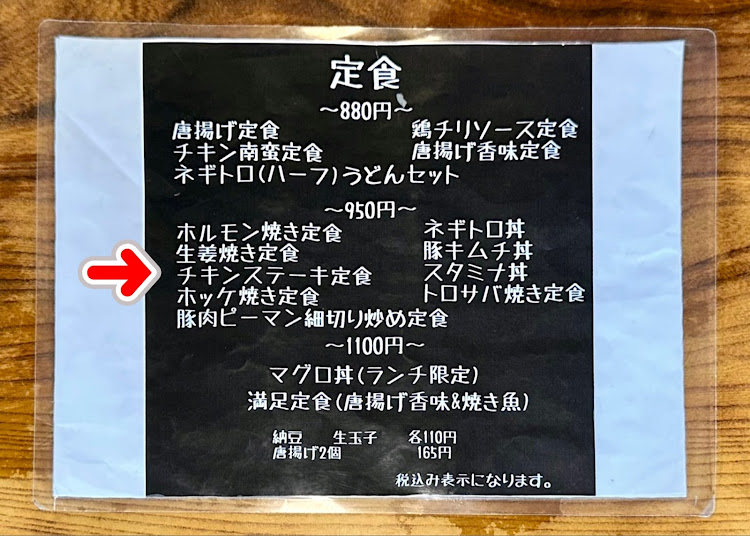 定食
～880円～
唐揚げ定食 鶏チリソース定食
チキン南蛮定食 唐揚げ香味定食
ネギトロ(ハーフ)うどんセット
～950円～
ホルモン焼き定食 ネギトロ丼
生姜焼き定食 豚キムチ丼
チキンステーキ定食 スタミナ丼
ホッケ焼き定食 トロサバ焼き定食
豚肉ピーマン細切り炒め定食
～1100円～
マグロ丼(ランチ限定)
満足定食(唐揚げ香味&焼き魚)
納豆 生玉子 各110円
唐揚げ2個 165円
税込み表示になります。